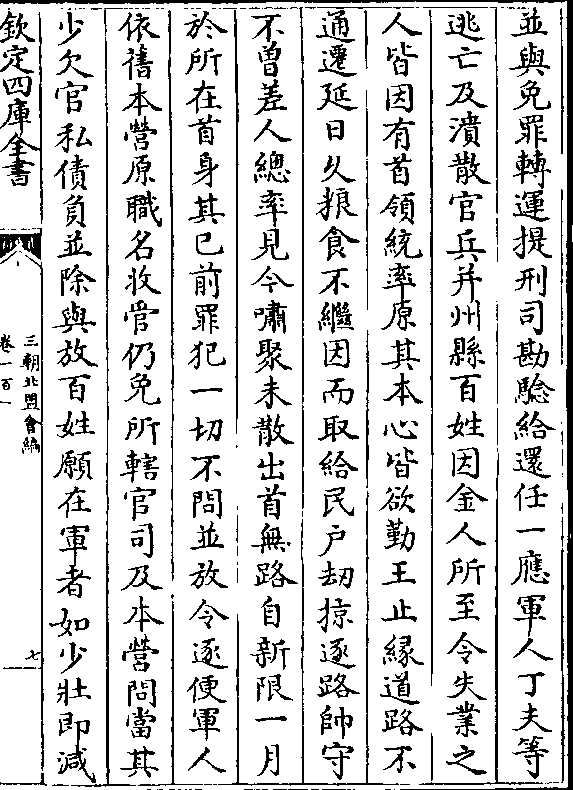 並與免罪轉運提刑司勘驗給還任一應軍人丁夫等
逃亡及潰散官兵并州縣百姓因金人所至令失業之
人皆因有首領統率原其本心皆欲勤王止緣道路不
通遷延日久粮食不繼因而取給民户刼掠逐路帥守
不曽差人總率見今嘯聚未散出首無路自新限一月
於所在首身其已前罪犯一切不問並放令逐便軍人
依舊本營原職名收管仍免所轄官司及本營問當其
少欠官私債負並除與放百姓願在軍者如少壯即減
欽定四庫全書
三朝北盟會編
卷一百一
七